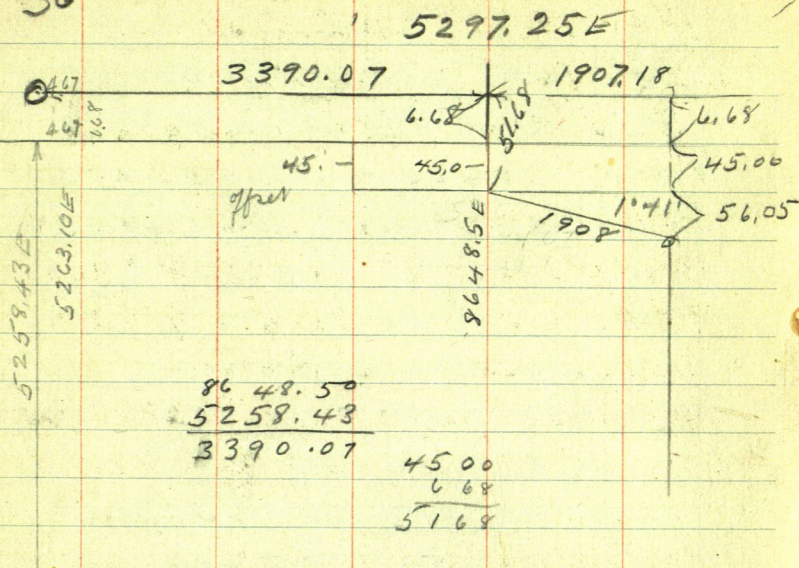 5297.25E
3390.07
1907.18
4.67
4.67
6.68
6.68
51.68
6.68
45.-
45.0-
45.00
offset
1908
1°41'
56.05
5258.43E
5263.10E
8648.5E
8648.50
5258.43
3390.07
4500
668
5168